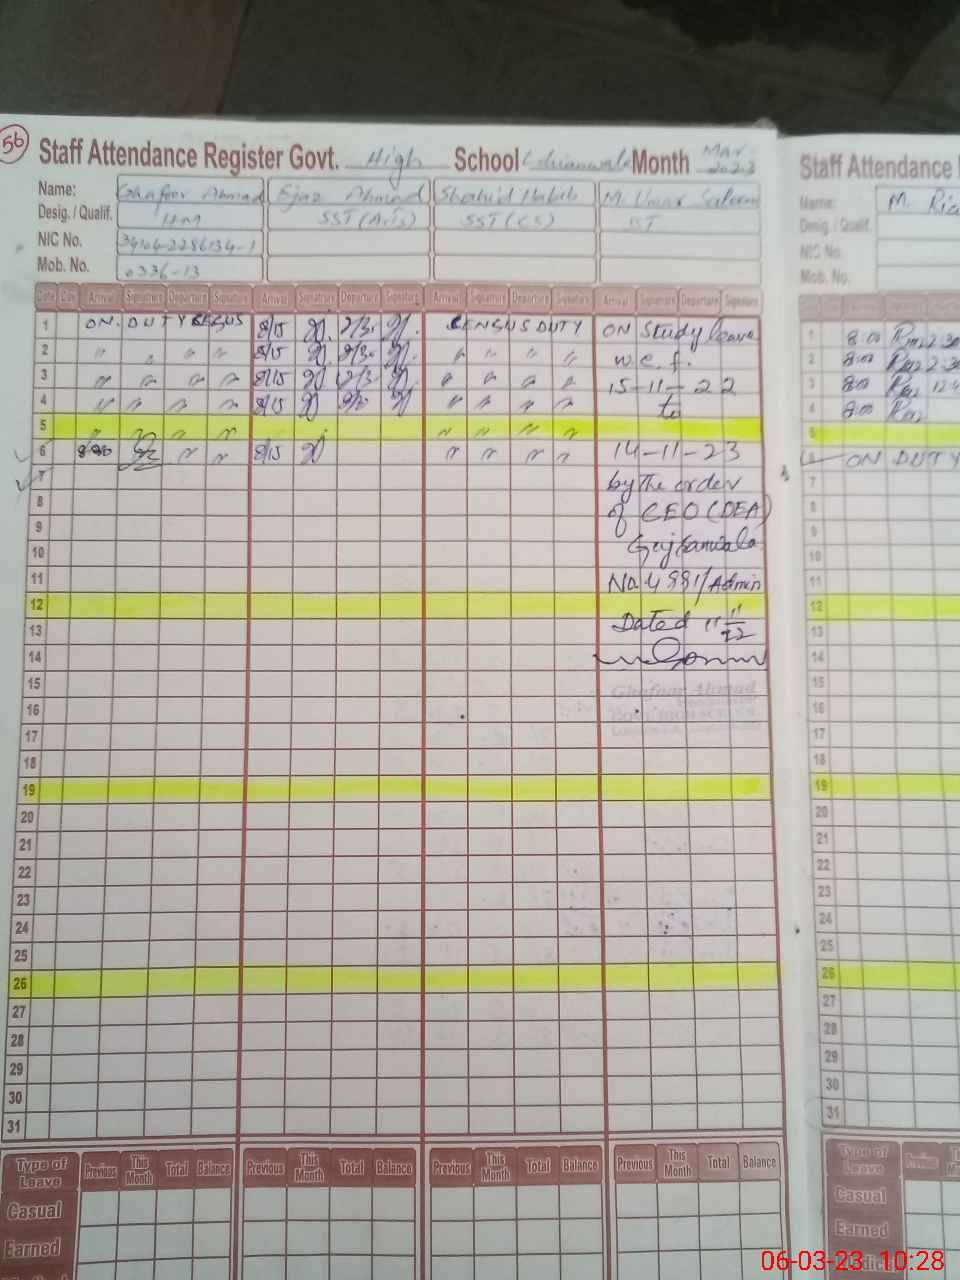 56
Staff Attendance Register Govt. High School Month Mar- 2023
Name: Ghafoor Ahmad Ejaz Ahmad Shahid Habib M. Umar Saleem
Desig. / Qualif. HM SST (Arts) SST (CS) SST
NIC No. 34104-2286134-1
Mob. No. 0336-13
Date Day Arrival Signature Departure Signature Arrival Signature Departure Signature Arrival Signature Departure Signature Arrival Signature Departure Signature
1 ON DUTY 8/15 2/30 CENSUS DUTY ON Study leave
2 " " " " 8/15 2/30 " " " " w.e.f.
3 " " " " 8/15 " " " " 15-11-22
4 " " " " 8/15 " " " " to
5 " " " " " "
6 " " 8/15 " " " " 14-11-23
7 by the order
8 of CEO (DEA)
9
10
11 Admin
12 Dated
13
14
15 Ghafoor Ahmad
16
17
18
19
20
21
22
23
24
25
26
27
28
29
30
31
Type of Leave Previous This Month Total Balance Previous This Month Total Balance Previous This Month Total Balance Previous This Month Total Balance
Casual
Earned
Staff Attendance
Name: M.
Desig. / Qualif.
NIC No.
Mob. No.
1 8:00 2:30
2 8:00 2:30
3 8:00
4 8:00
5
6 ON DUTY
7
8
9
10
11
12
13
14
15
16
17
18
19
20
21
22
23
24
25
26
27
28
29
30
31
Type of Leave
Casual
Earned
06-03-23 10:28